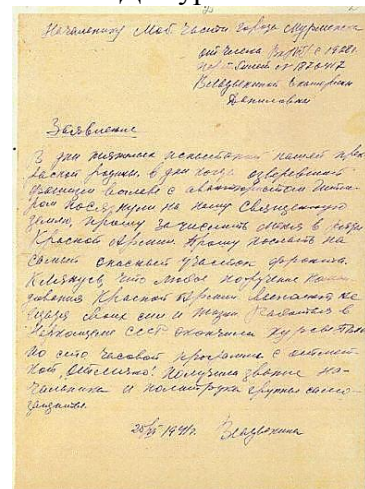 Начальнику Моб. части города Мурманска
от члена ВКП(б) с 1928 г.
парт билет № 1876417
Владыкиной Екатерины
Даниловны
Заявление
В дни тяжелых испытаний нашей прек
расной родины, в дни когда озверевший
фашизм с авантюристом Гитле
ром посягнули на нашу священную
землю, прошу зачислить меня в ряды
Красной Армии. Прошу послать на
самый опасный участок фронта.
Клянусь, что любое поручение коман
дования Красной Армии выполню не
щадя своих сил и жизни
СССР окончила курсы
по сто часовой программе с отмет
кой „отлично". Получила звание на
чальника и политрука группы само
защиты.
1941 г.